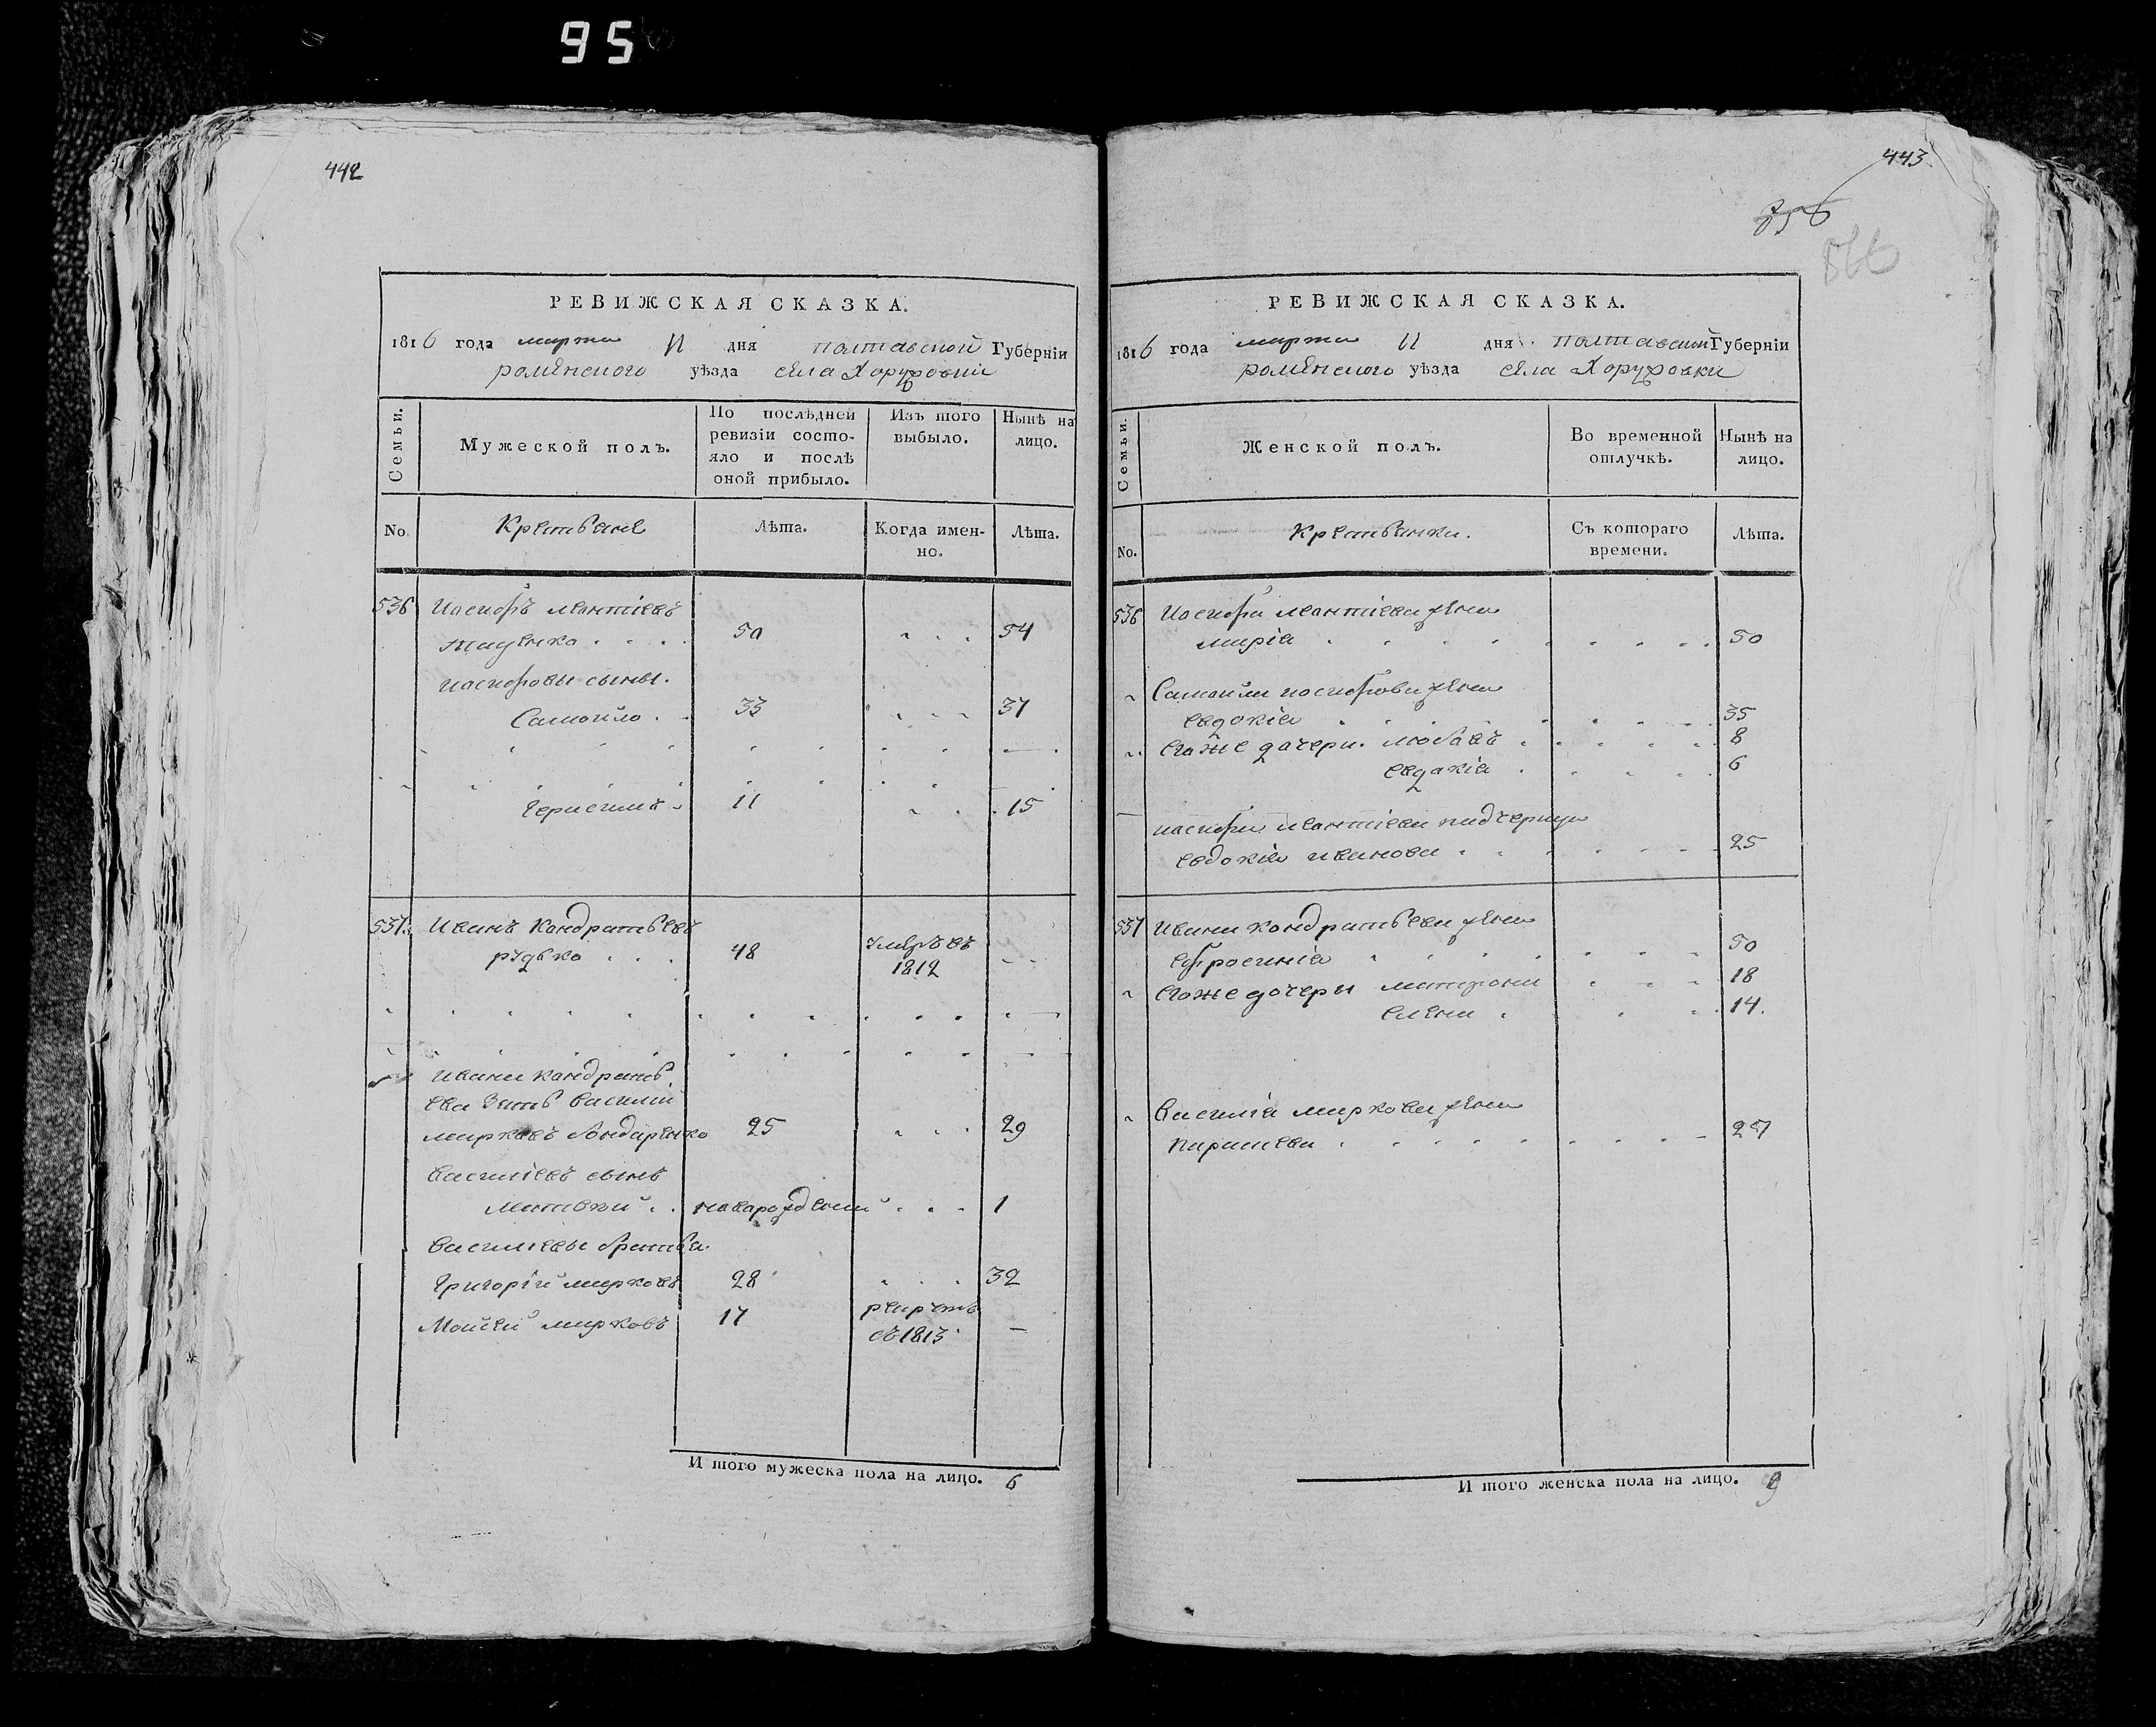 95
442
РЕВИЖСКАЯ СКАЗКА.
1816 года марта 11 дня полтавской Губерніи
роменского уѣзда села Хоружовки
Семьи.
Мужеской полъ.
По послѣдней ревизіи состояло и послѣ оной прибыло.
Изъ того выбыло.
Нынѣ на лицо.
No.
Крестьяне
Лѣта.
Когда именно.
Лѣта.
536 Иосифъ леонтіевъ
50 54
иосифовы сыны.
Самойло 33 37
Герасимъ 11 15
537. Иванъ Кондратьевъ
рудько 48 умеръ въ 1812
Ивана Кондрать
ева Зять василий
марковъ бондаренко 25 29
василіевъ сынъ
Матвей новорожденый 1
василіевы братья.
Григорій марковъ 28 32
Мойсей марковъ 17 рекрутъ
съ 1813 —
И того мужеска пола на лицо. 6
443
856
866
РЕВИЖСКАЯ СКАЗКА.
1816 года марта 11 дня полтавской Губерніи
роменского уѣзда села Хоружовки
Семьи.
Женской полъ.
Во временной отлучкѣ.
Нынѣ на лицо.
No.
Крестьянки.
Съ котораго времени.
Лѣта.
536 Иосифа леонтіева жена
марія 50
Самойла иосифова жена
евдокія 35
егоже дочери. любовъ 8
евдокія 6
иосифа леонтіева падчерица
евдокія иванова 25
537 Ивана кондратьева жена
ефросинія 50
егоже дочери матрона 18
елена 14.
василія маркова жена
параскева 27
И того женска пола на лицо. 9